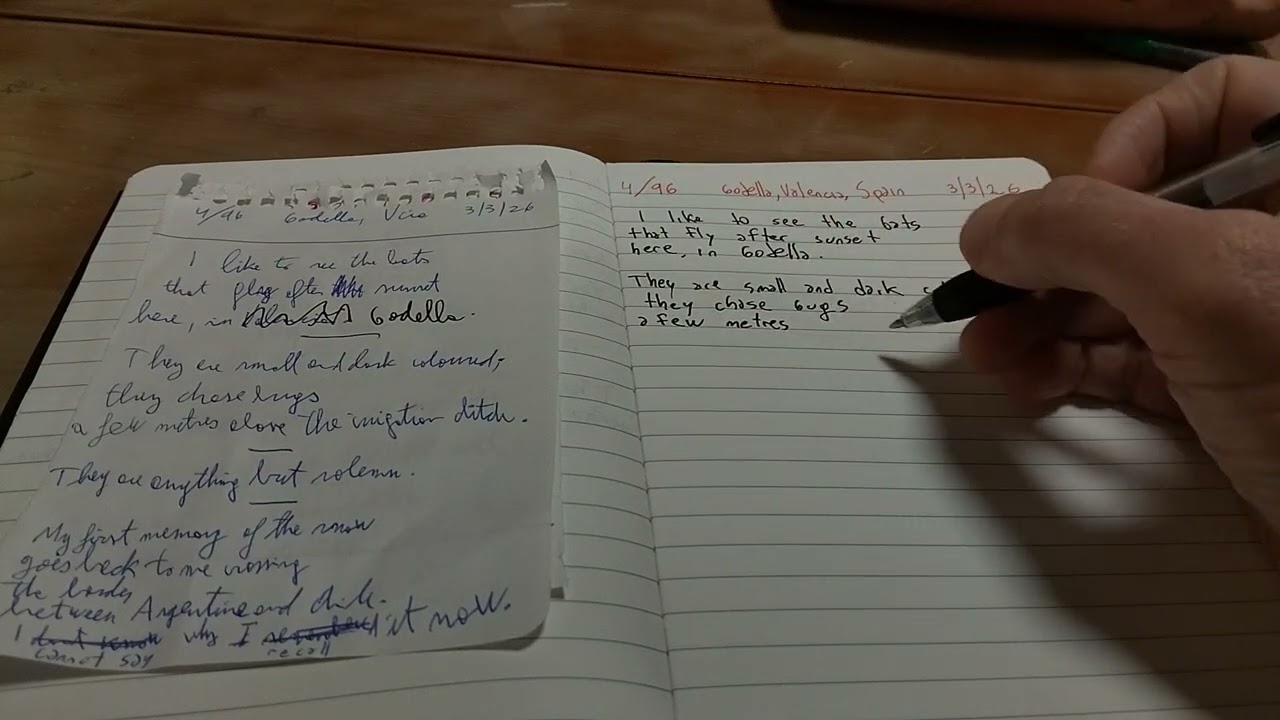 4/96 Godella, 3/3/26
I like to see the bats
that play after sunset
here, in Godella.
They are small and dark coloured;
they chase bugs
a few metres above the irrigation ditch.
They are anything but solemn.
My first memory of the snow
goes back to me crossing
the border
between Argentina and Chile.
I cannot say why I recall it now.
4/96 Godella, Valencia, Spain 3/3/26
I like to see the bats
that fly after sunset
here, in Godella.
They are small and dark
they chase bugs
a few metres